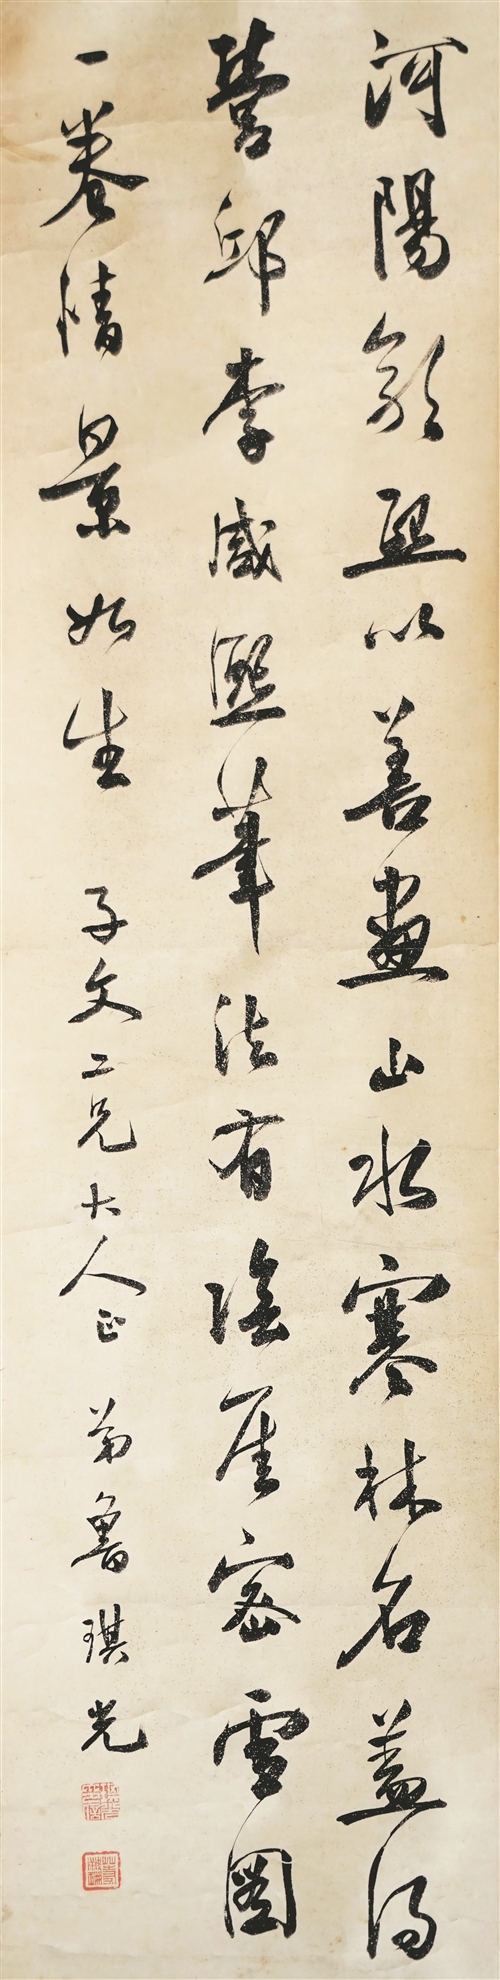 河陽郭熙以善畫山水寒林名蓋得
營邱李咸熙筆法有陰厓密雪圖
一卷情景如生 子文二兄大人正 弟魯琪光